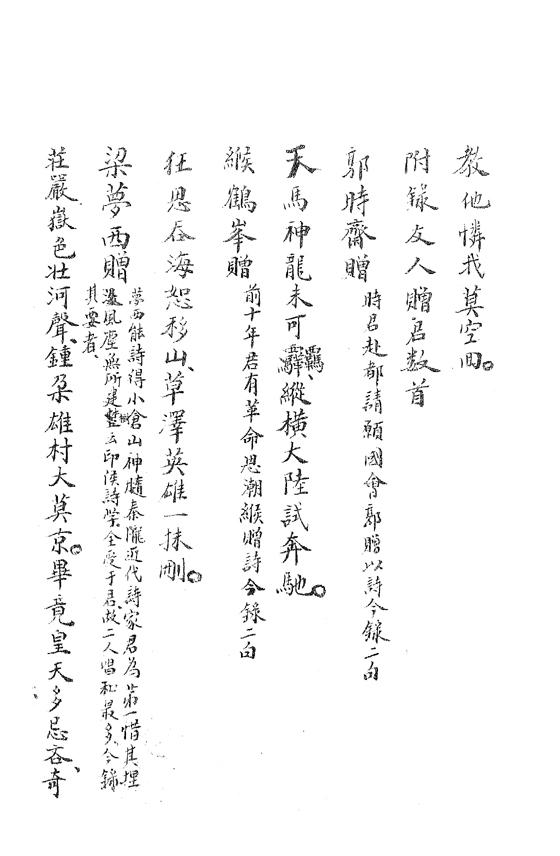 教他憐我莫空回。
附錄友人贈君数首
郭時齋贈 時君赴都請願國會郭贈以詩今錄二句
天馬神龍未可羈、縱橫大陸試奔馳。
緱鶴峯贈 前十年君有革命思潮緱贈詩今錄二句
狂思吞海恕移山、草澤英雄一抹剛。
梁夢西贈 夢西能詩得小倉山神髓秦隴近代詩家君為第一惜其埋
沒風塵無所建樹云印侯詩學全受于君、故二人唱和最多、今錄
其要者、
莊嚴嶽色壯河聲、鍾朶雄村大莫京。畢竟皇天多忌吝、奇